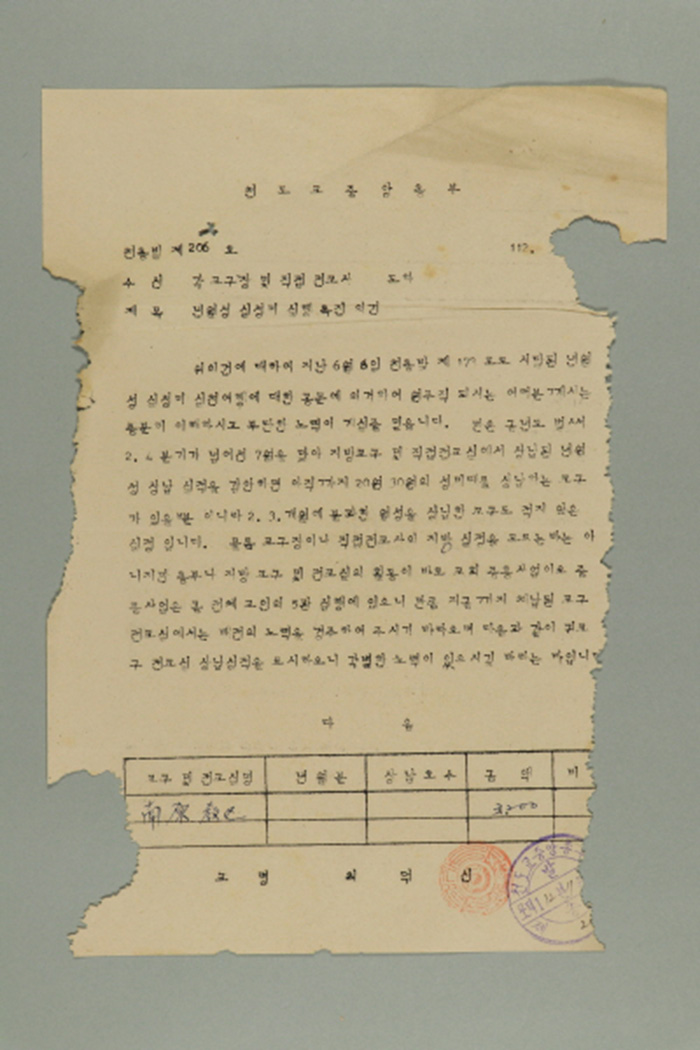 천도교중앙총부
천총발 제 206 호 112.
수 신 각 교구장 및 직접 전교사
제 목 년월성 실성미 실행 촉진 의 건
위의건에 대하여 지난 6월 6일 천총발 제 호로 시달된 년월
성 실성미 실천여행에 대한 공문에 의거하여 원주직 되시는 여러분께서는
충분히 이해하시고 부단한 노력이 계심을 믿습니다. 벌서
2. 4 분기가 넘어선 7월을 맞아 지방교구 및 직접전교실에서 상납된 년월
성 상납 실적을 감안하면 아직까지 20원 30원의 성미대를 상납하는 교구
가 있을뿐 아니라 2. 3. 개월에 불과한 월성을 상납한 교구도 적지 않은
실정 입니다. 물론 교구장이나 직접전교사이 지방 실정을 모르는바는 아
니지만 총부나 지방 교구 및 전교실의 활동이 바로 교회 중흥사업이요 중
흥사업은 곧 전체 교인의 5관 실행에 있으니 만큼 지금까지 체납된 교구
전교실에서는 배전의 노력을 경주하여 주시기 바라오며 다음과 같이 귀교
구 전교실 상납실적을 표시하오니 각별한 노력이 있으시길 바라는 바입니
다 음
교구 및 전교실명 년월분 상납호수 금 액 비
南原教区 3200
교 령 최 덕 신
천도교중앙총
발